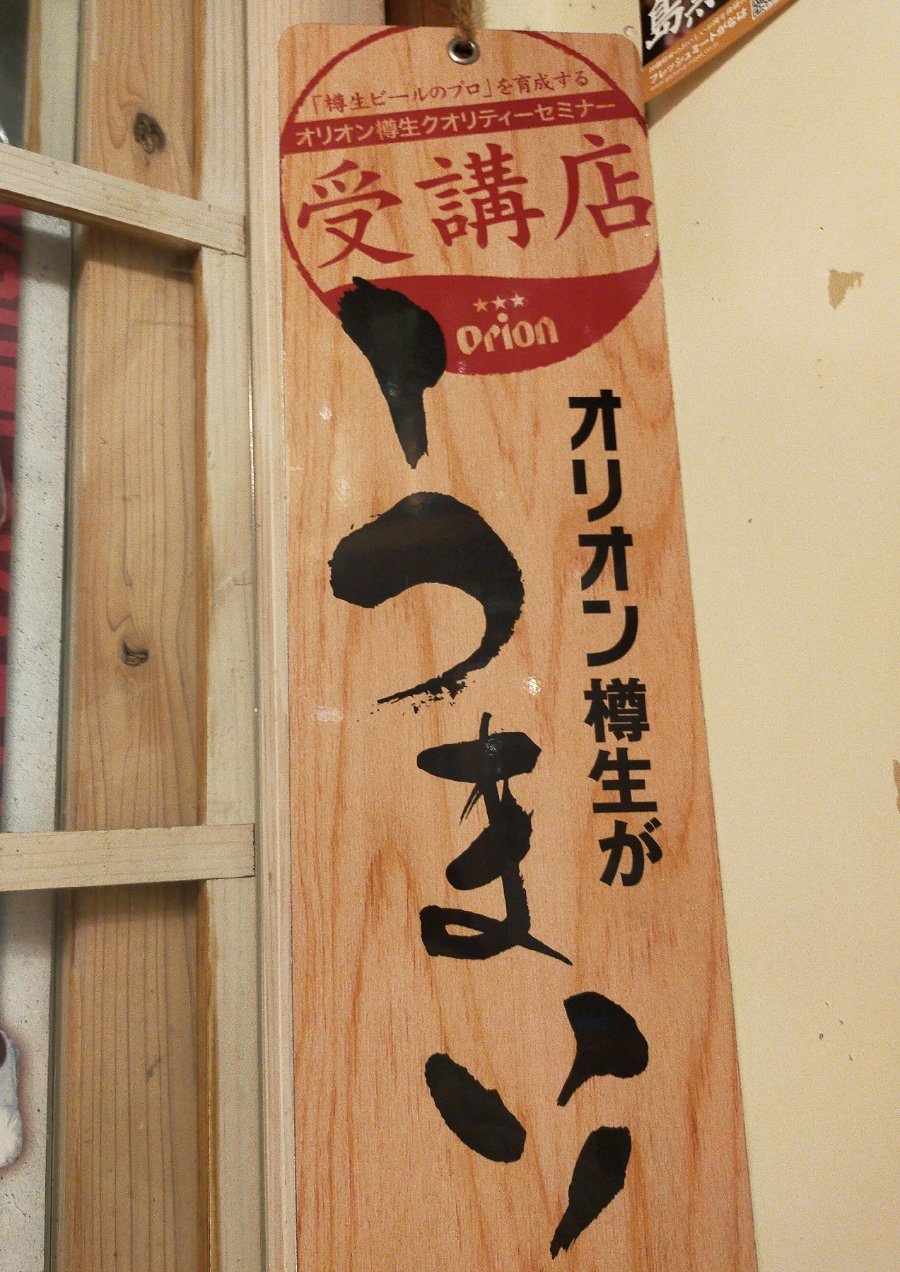 「樽生ビールのプロ」を育成する
オリオン樽生クオリティーセミナー
受講店
orion
オリオン樽生が
うまい
島